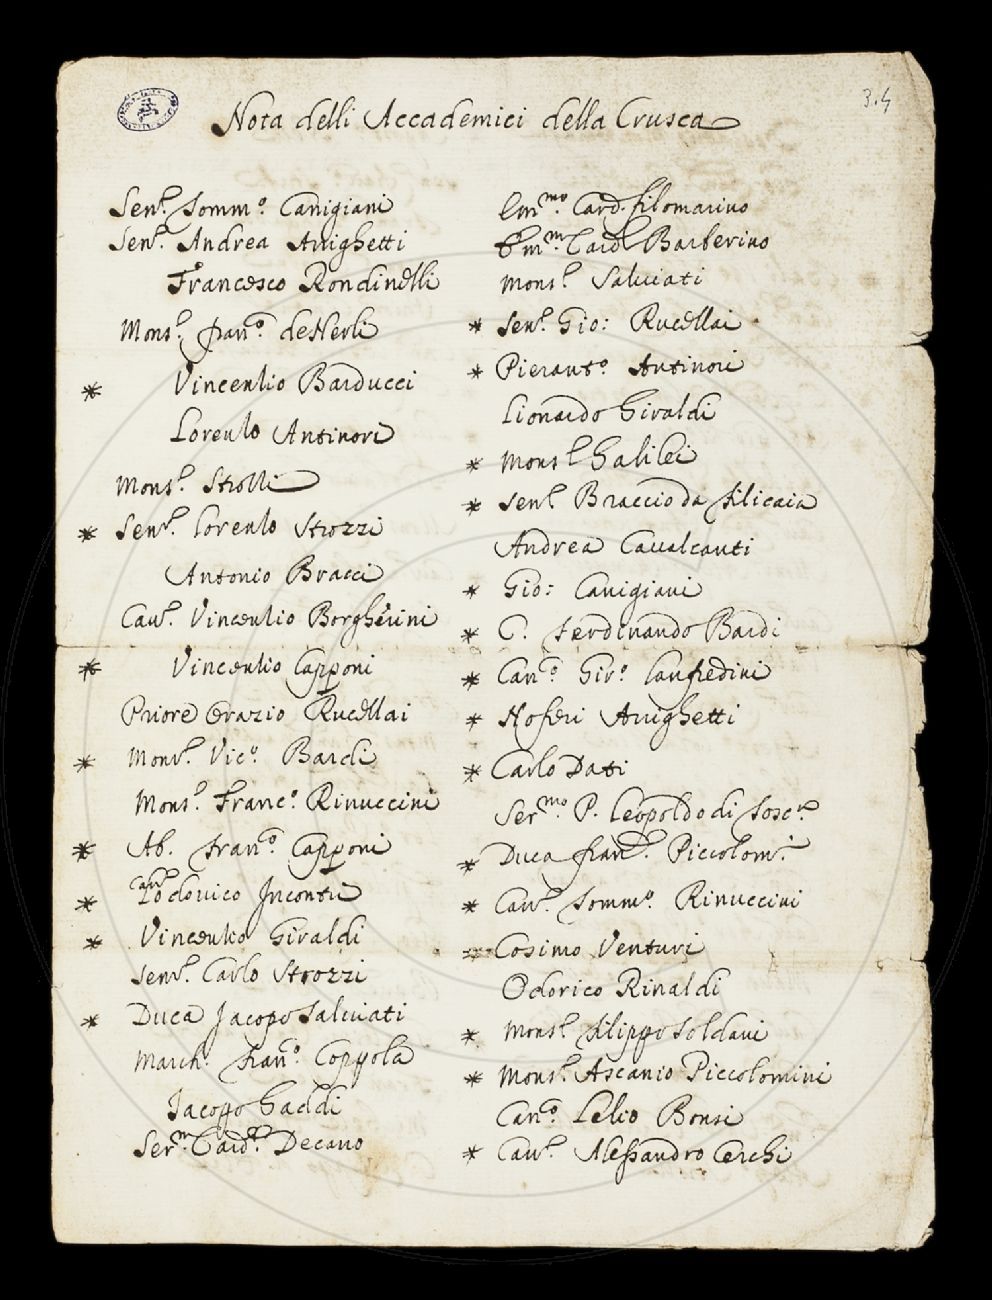 3.4
Nota delli Accademici della Crusca
Senr. Tommo. Canigiani
Senr. Andrea Arrighetti
Francesco Rondinelli
Monsr. Franco. de Nerli
* Vincentio Barducci
Lorenzo Antinori
Monsr. Strozzi
* Senr. Lorenzo Strozzi
Antonio Bracci
Cavr. Vincentio Borgherini
* Vincentio Capponi
Priore Orazio Rucellai
* Monsr. Vico. Bardi
Monsr. Franco. Rinuccini
* Ab. Franco. Capponi
* Canr. Lodovico Incontri
* Vincentio Giraldi
Senr. Carlo Strozzi
* Duca Jacopo Salviati
March. Franco. Coppola
Jacopo Gaddi
Serm. Card. Decano
Emmo. Card. Filomarino
Emm. Card. Barberino
Monsr. Salviati
* Senr. Gio: Rucellai
* Pieranto. Antinori
Lionardo Giraldi
* Monsr Galilei
* Senr Braccio da Filicaia
Andrea Cavalcanti
* Gio: Canigiani
* C. Ferdinando Bardi
* Canco. Giro. Lanfredini
* Noferi Arrighetti
* Carlo Dati
Sermo. P. Leopoldo di Tosca
* Duca Franc. Piccolomi
* Cavr. Tommo. Rinuccini
Cosimo Venturi
Odorico Rinaldi
* Monsr. Filippo Soldani
* Monsr. Ascanio Piccolomini
Canco. Lelio Bonsi
* Cavr. Alessandro Cerchi